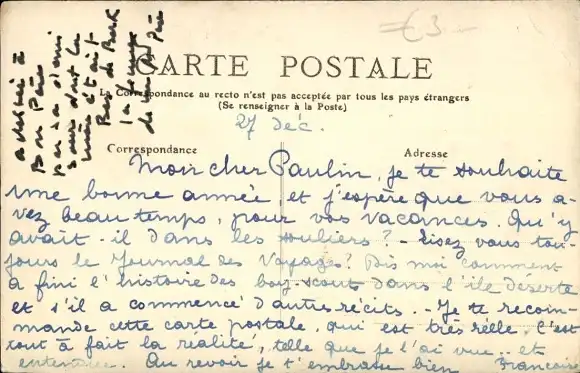 €3-
CARTE POSTALE
La Correspondance au recto n'est pas acceptée par tous les pays étrangers
(Se renseigner à la Poste)
27 déc.
Correspondance
Adresse
Mon cher Paulin, je te souhaite
une bonne année, et j'espère que vous a-
vez beau temps, pour vos vacances. Qu'y
avait-il dans les souliers? - Lisez vous tou-
jours le Journal des Voyages? Dis moi comment
a fini l'histoire des boy-scouts dans l'île déserte
et s'il a commencé d'autres récits. - Je te recom-
mande cette carte postale, qui est très réelle. C'est
tout à fait la réalité, telle que je l'ai vue.. et
entendue. Au revoir je t'embrasse bien Françoise
à
Bon Père
par sa
dont la
était
de